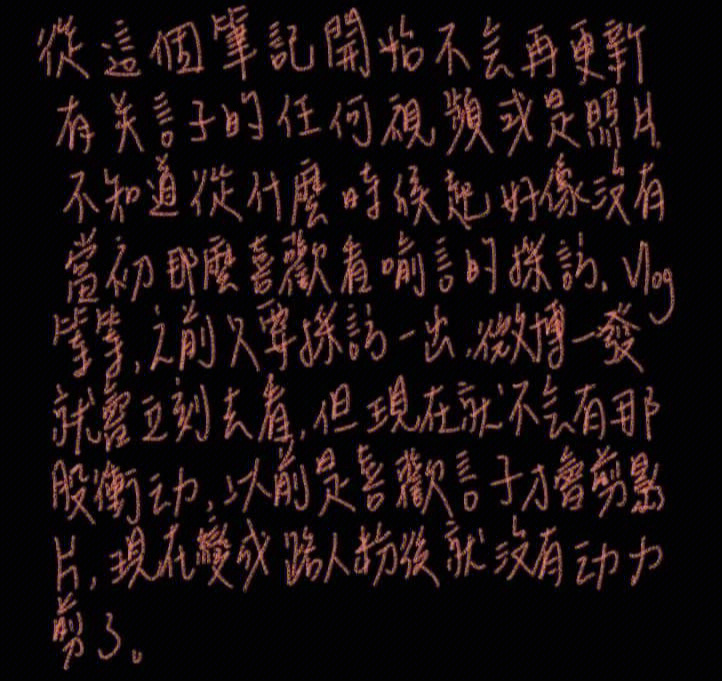 從這個筆記開始不会再更新
有关言子的任何視頻或是照片.
不知道從什麼時候起好像沒有
當初那麼喜歡看喻言的採訪. Vlog
等等, 之前只要採訪一出,微博一發
就會立刻去看, 但現在就不会有那
股衝动, 以前是喜歡言子才會剪影
片, 現在變成路人粉後就沒有动力
剪了。